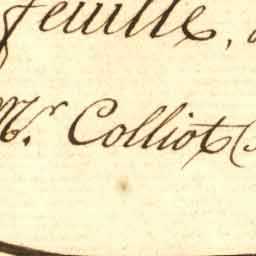 feuille,
Mr. Colliot (